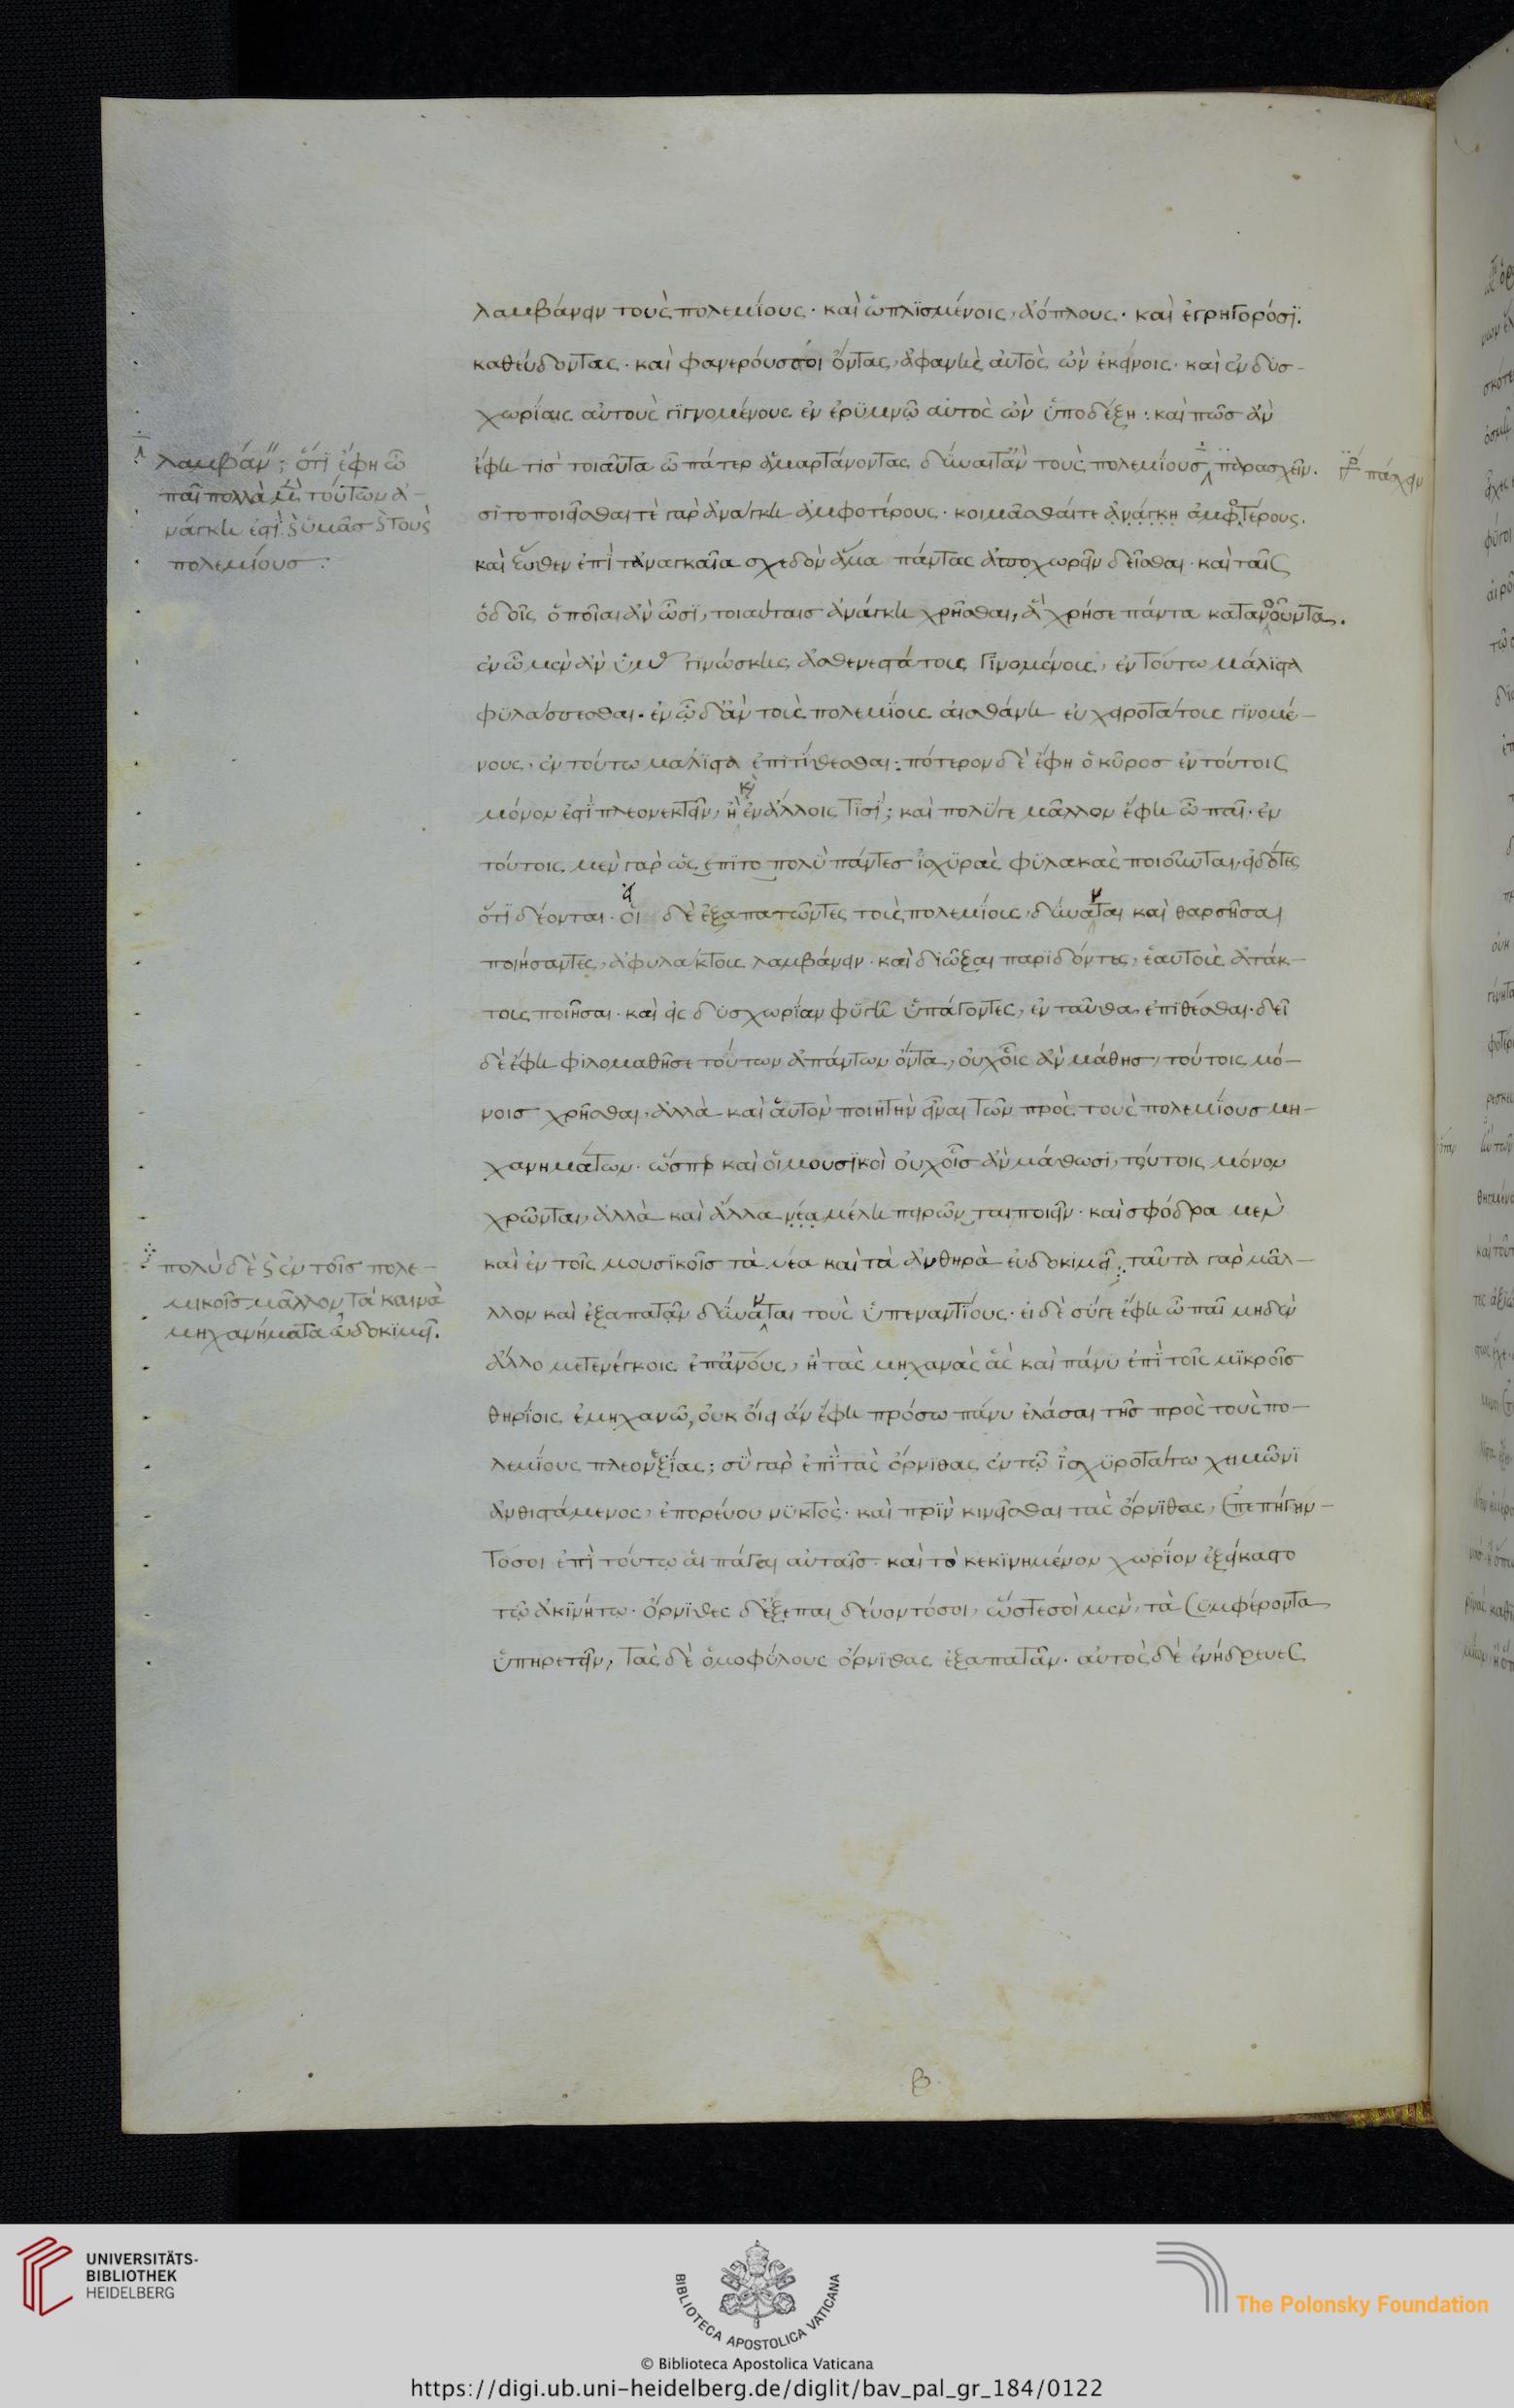 λαμβάνειν τοὺς πολεμίους · καὶ ὡπλϊσμένοις, ἀόπλους · καὶ ἐγρηγορόσϊ.
καθεύδοντας · καὶ φανερούσσοι ὄντας, ἀφανὴς αὐτὸς ὢν ἐκείνοις · καὶ ἐν δϋσ-
χωρίαις αὐτοὺς γϊγνομένους ἐν ἐρϋμνῶ αὐτὸς ὢν ὑποδέξη : καὶ πῶσ ἂν
ἔφη τὶσ τοιαῦτα ὦ πάτερ ἁμαρτάνοντας δύναιτ' ἂν τοὺς πολεμίουσ παρασχεῖν.
σϊτοποιεῖσθαι τὲ γὰρ ἀνάγκη ἀμφοτέρους · κοιμᾶσθαί τε ἀνάγκη ἀμφοτέρους.
καὶ ἕωθεν ἐπὶ τἀναγκαῖα σχεδὸν ἅμα πάντας ἀποχωρεῖν δεῖσθαι · καὶ ταῖς
ὁδοῖς ὁποῖαι ἂν ὦσϊ, τοιαύταισ ἀνάγκη χρῆσθαι, ἃ χρή σε πάντα κατανοοῦντα.
ἐν ὧ μὲν ἂν ὑμ γϊνώσκης ἀσθενεστάτοις γϊνομένοις, ἐν τούτω μάλϊστα
φϋλάσσεσθαι · ἐν ὧ δ' ἂν τοὶς πολεμίοις αἰσθάνη εὐχειροτάτοις γϊνομέ-
νους, ἐν τούτω μάλϊστα ἐπϊτίθεσθαι : πότερον δὲ ἔφη ὁ κῦροσ ἐν τούτοις
μόνον ἐστϊ πλεονεκτεῖν, ἢ καὶ ἐν ἄλλοις τϊσϊ; καὶ πολύ γε μᾶλλον ἔφη ὦ παῖ · ἐν
τούτοις μὲν γὰρ ὡς ἐπϊτοπολὺ πάντεσ ἰσχϋρὰς φϋλακὰς ποιοῦνται, εἰδότες
ὅτϊ δέονται · οἱ δὲ ἐξαπατῶντες τοὶς πολεμίοις, δύνανται καὶ θαρσῆσαι
ποιήσαντες, ἀφυλάκτοις λαμβάνειν · καὶ διῶξαι παρϊδόντες, ἑαυτοὶς ἀτάκ-
τοις ποιῆσαι · καὶ εἰς δϋσχωρίαν φϋγῆ ὑπάγοντες, ἐνταῦθα ἐπϊθέσθαι · δεῖ
δὲ ἔφη φϊλομαθῆ σε τούτων ἁπάντων ὄντα, οὐχ οἷς ἂν μάθησ, τούτοις μό-
νοισ χρῆσθαι, ἀλλὰ καὶ αὐτὸν ποιητὴν εἶναι τῶν πρὸς τοὺς πολεμίουσ μη-
χανημάτων · ὥσπερ καὶ οἱ μουσϊκοὶ οὐχ οἷσ ἂν μάθωσϊ, τούτοις μόνον
χρῶνται, ἀλλὰ καὶ ἄλλα νέα μέλη πειρῶνται ποιεῖν · καὶ σφόδρα μὲν
καὶ ἐν τοῖς μουσϊκοῖσ τὰ νέα καὶ τὰ ἀνθηρὰ εὐδοκιμεῖ : ταῦτα γὰρ μᾶλ-
λλον καὶ ἐξαπατᾶν δύνανται τοὺς ὑπεναντίους · εἰ δὲ σύ γε ἔφη ὦ παῖ μηδὲν
ἄλλο μετενέγκοις ἐπ' ἀνους, ἢ τὰς μηχανὰς ἃς καὶ πάνυ ἐπὶ τοῖς μϊκροῖσ
θηρίοις ἐμηχανῶ, οὐκ οἴει ἂν ἔφη πρόσω πάνυ ἐλάσαι τῆσ πρὸς τοὺς πο-
λεμίους πλεονεξίας; σὺ γὰρ ἐπϊ τὰς ὄρνϊθας ἐν τῶ ἰσχϋροτάτω χειμῶνϊ
ἀνθιστάμενος, ἐπορεύου νϋκτὸς · καὶ πρϊν κινεῖσθαι τὰς ὄρνϊθας, ἐπεπήγην-
τόσοι ἐπὶ τούτω αἱ πάγαι αὐταῖσ · καὶ τὸ κεκϊνημένον χωρίον ἐξείκαστο
τῶ ἀκϊνήτω · ὄρνϊθες δ' ἐξεπαιδεύοντόσοι, ὥστε σοὶ μὲν, τὰ συμφέροντα
ὑπηρετεῖν, τὰς δὲ ὁμοφύλους ὄρνϊθας ἐξαπατᾶν · αὐτὸς δὲ ἐνήδρευες
λαμβάν"; ὅτϊ ἔφη ὦ
παῖ πολλὰ μὲν τούτων ἀ-
νάγκη ἐστὶ καὶ ὑμᾶσ καὶ τοὺς
πολεμίουσ :
πάσχειν
πολὺ δὲ καὶ ἐν τοῖσ πολε-
μικοῖσ μᾶλλον τὰ καινὰ
μηχανήματα εὐδοκϊμεῖ.
β
UNIVERSITÄTS-
BIBLIOTHEK
HEIDELBERG
BIBLIOTECA APOSTOLICA VATICANA
The Polonsky Foundation
© Biblioteca Apostolica Vaticana
https://digi.ub.uni-heidelberg.de/diglit/bav_pal_gr_184/0122